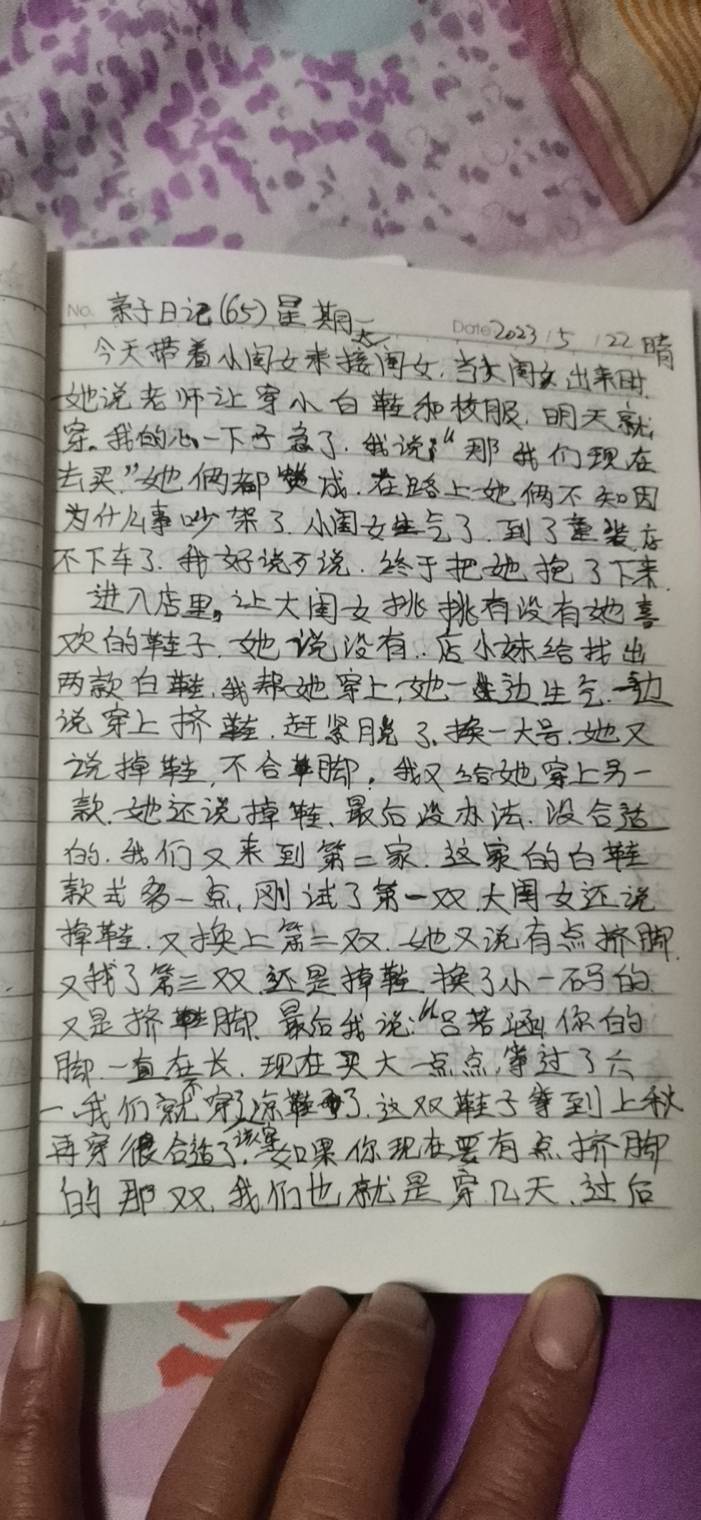 No. 亲子日记(65)星期一 Date 2023 / 5 / 22 晴
今天带着小闺女来接闺女,当大闺女出来时,
她说老师让穿小白鞋和校服,明天就
穿。我的心一下子急了,我说:“那我们现在
去买。”她俩都赞成。在路上她俩不知因
为什么事吵架了,小闺女生气了,到了童装店
不下车了,我好说歹说,终于把她抱了下来。
进入店里,让大闺女挑挑有没有她喜
欢的鞋子,她说没有,店小妹给找出
两款白鞋,我帮她穿上,她一边生气一边
说穿上挤鞋,赶紧脱了,换一大号,她又
说掉鞋,不合脚。我又给她穿上另一
款,她还说掉鞋,最后没办法,没合适
的,我们又来到第二家,这家的白鞋
款式多一点,刚试了第一双,大闺女还说
掉鞋,又换上第二双,她又说有点挤脚,
又找了第三双,还是掉鞋,换了小一码的
又是挤脚,最后我说:“吕若涵,你的
脚一直在长,现在买大一点点,等过了六
一,我们就不穿了,凉鞋了,这双鞋子等到上秋
再穿很合适了,如果你现在要有点挤脚
的那双,我们也就是穿几天,过后